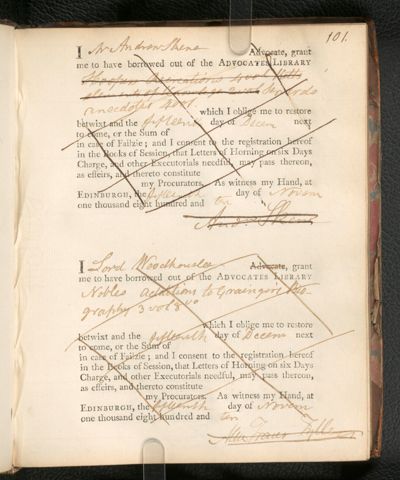 101.
I Mr Andrew Skene Advocate, grant
me to have borrowed out of the ADVOCATES LIBRARY
anecdotes 4 vol.
which I oblige me to restore
betwixt and the fifteenth day of Decem next
to come, or the Sum of
in case of Failzie; and I consent to the registration hereof
in the Books of Session, that Letters of Horning on six Days
Charge, and other Executorials needful, may pass thereon,
as effeirs, and thereto constitute
my Procurators. As witness my Hand, at
EDINBURGH, the fifteenth day of Novem
one thousand eight hundred and ten
Andw. Skene
I Lord Woodhouselee Advocate, grant
me to have borrowed out of the ADVOCATES LIBRARY
Nobles additions to Graingers Bio
graphy 3 vol 8vo
which I oblige me to restore
betwixt and the fifteenth day of Decem next
to come, or the Sum of
in case of Failzie; and I consent to the registration hereof
in the Books of Session, that Letters of Horning on six Days
Charge, and other Executorials needful, may pass thereon,
as effeirs, and thereto constitute
my Procurators. As witness my Hand, at
EDINBURGH, the fifteenth day of Novem
one thousand eight hundred and ten
Alex Fraser Tytler